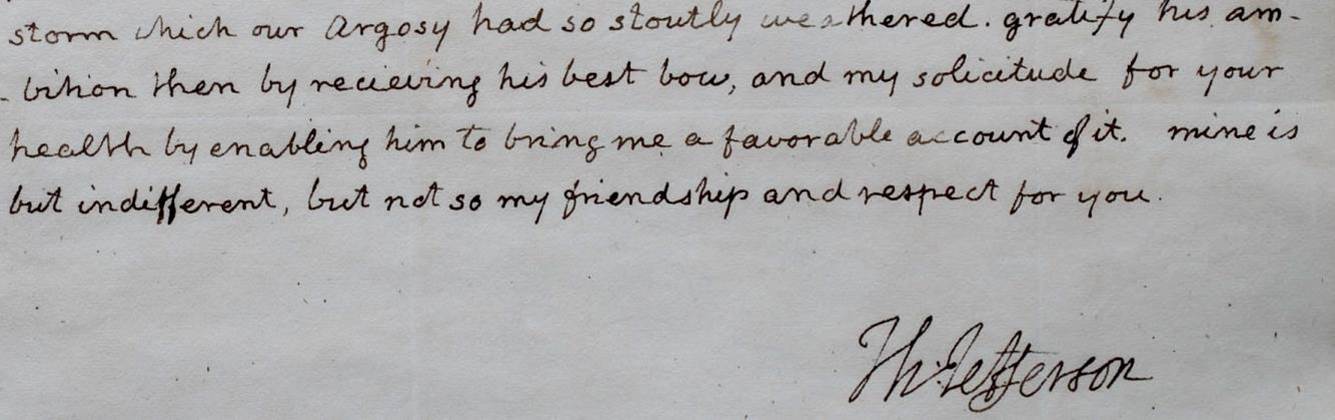 storm which our Argosy had so stoutly weathered. gratify his am-
- bition then by recieving his best bow, and my solicitude for your
health by enabling him to bring me a favorable account of it. mine is
but indifferent, but not so my friendship and respect for you.
Th: Jefferson